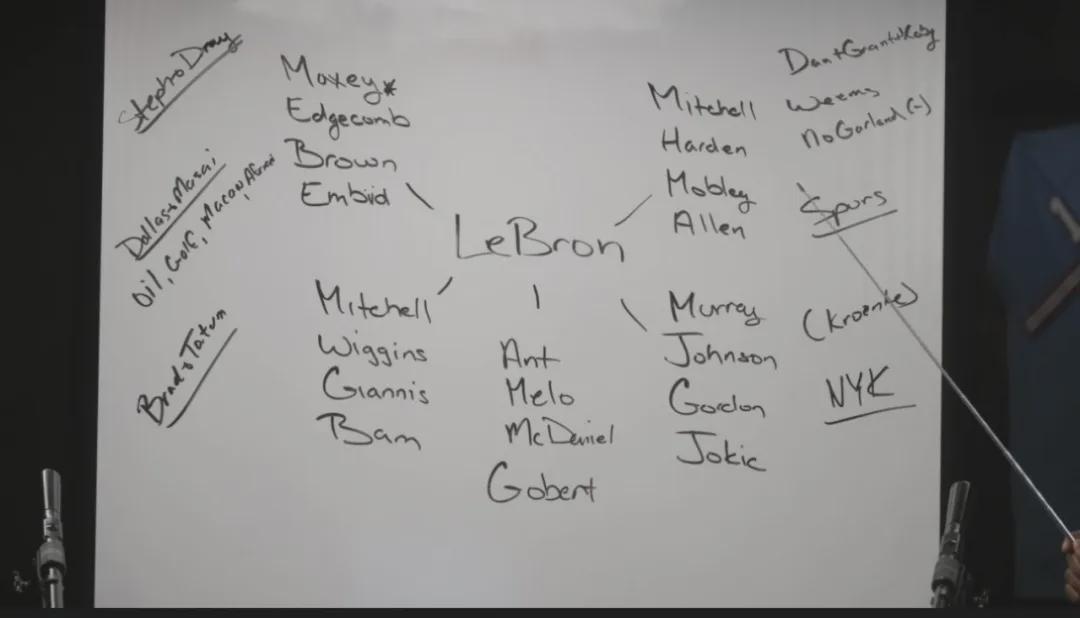 Steph & Dray
Dallas & Masai
Oil, Golf, Macon,
Brad & Tatum
Maxey*
Edgecomb
Brown
Embiid
LeBron
Mitchell
Harden
Mobley
Allen
Mitchell
Wiggins
Giannis
Bam
Ant
Melo
McDaniel
Gobert
Murray
Johnson
Gordon
Jokic
Weems
No Garland (-)
Spurs
(Kroenke)
NYK